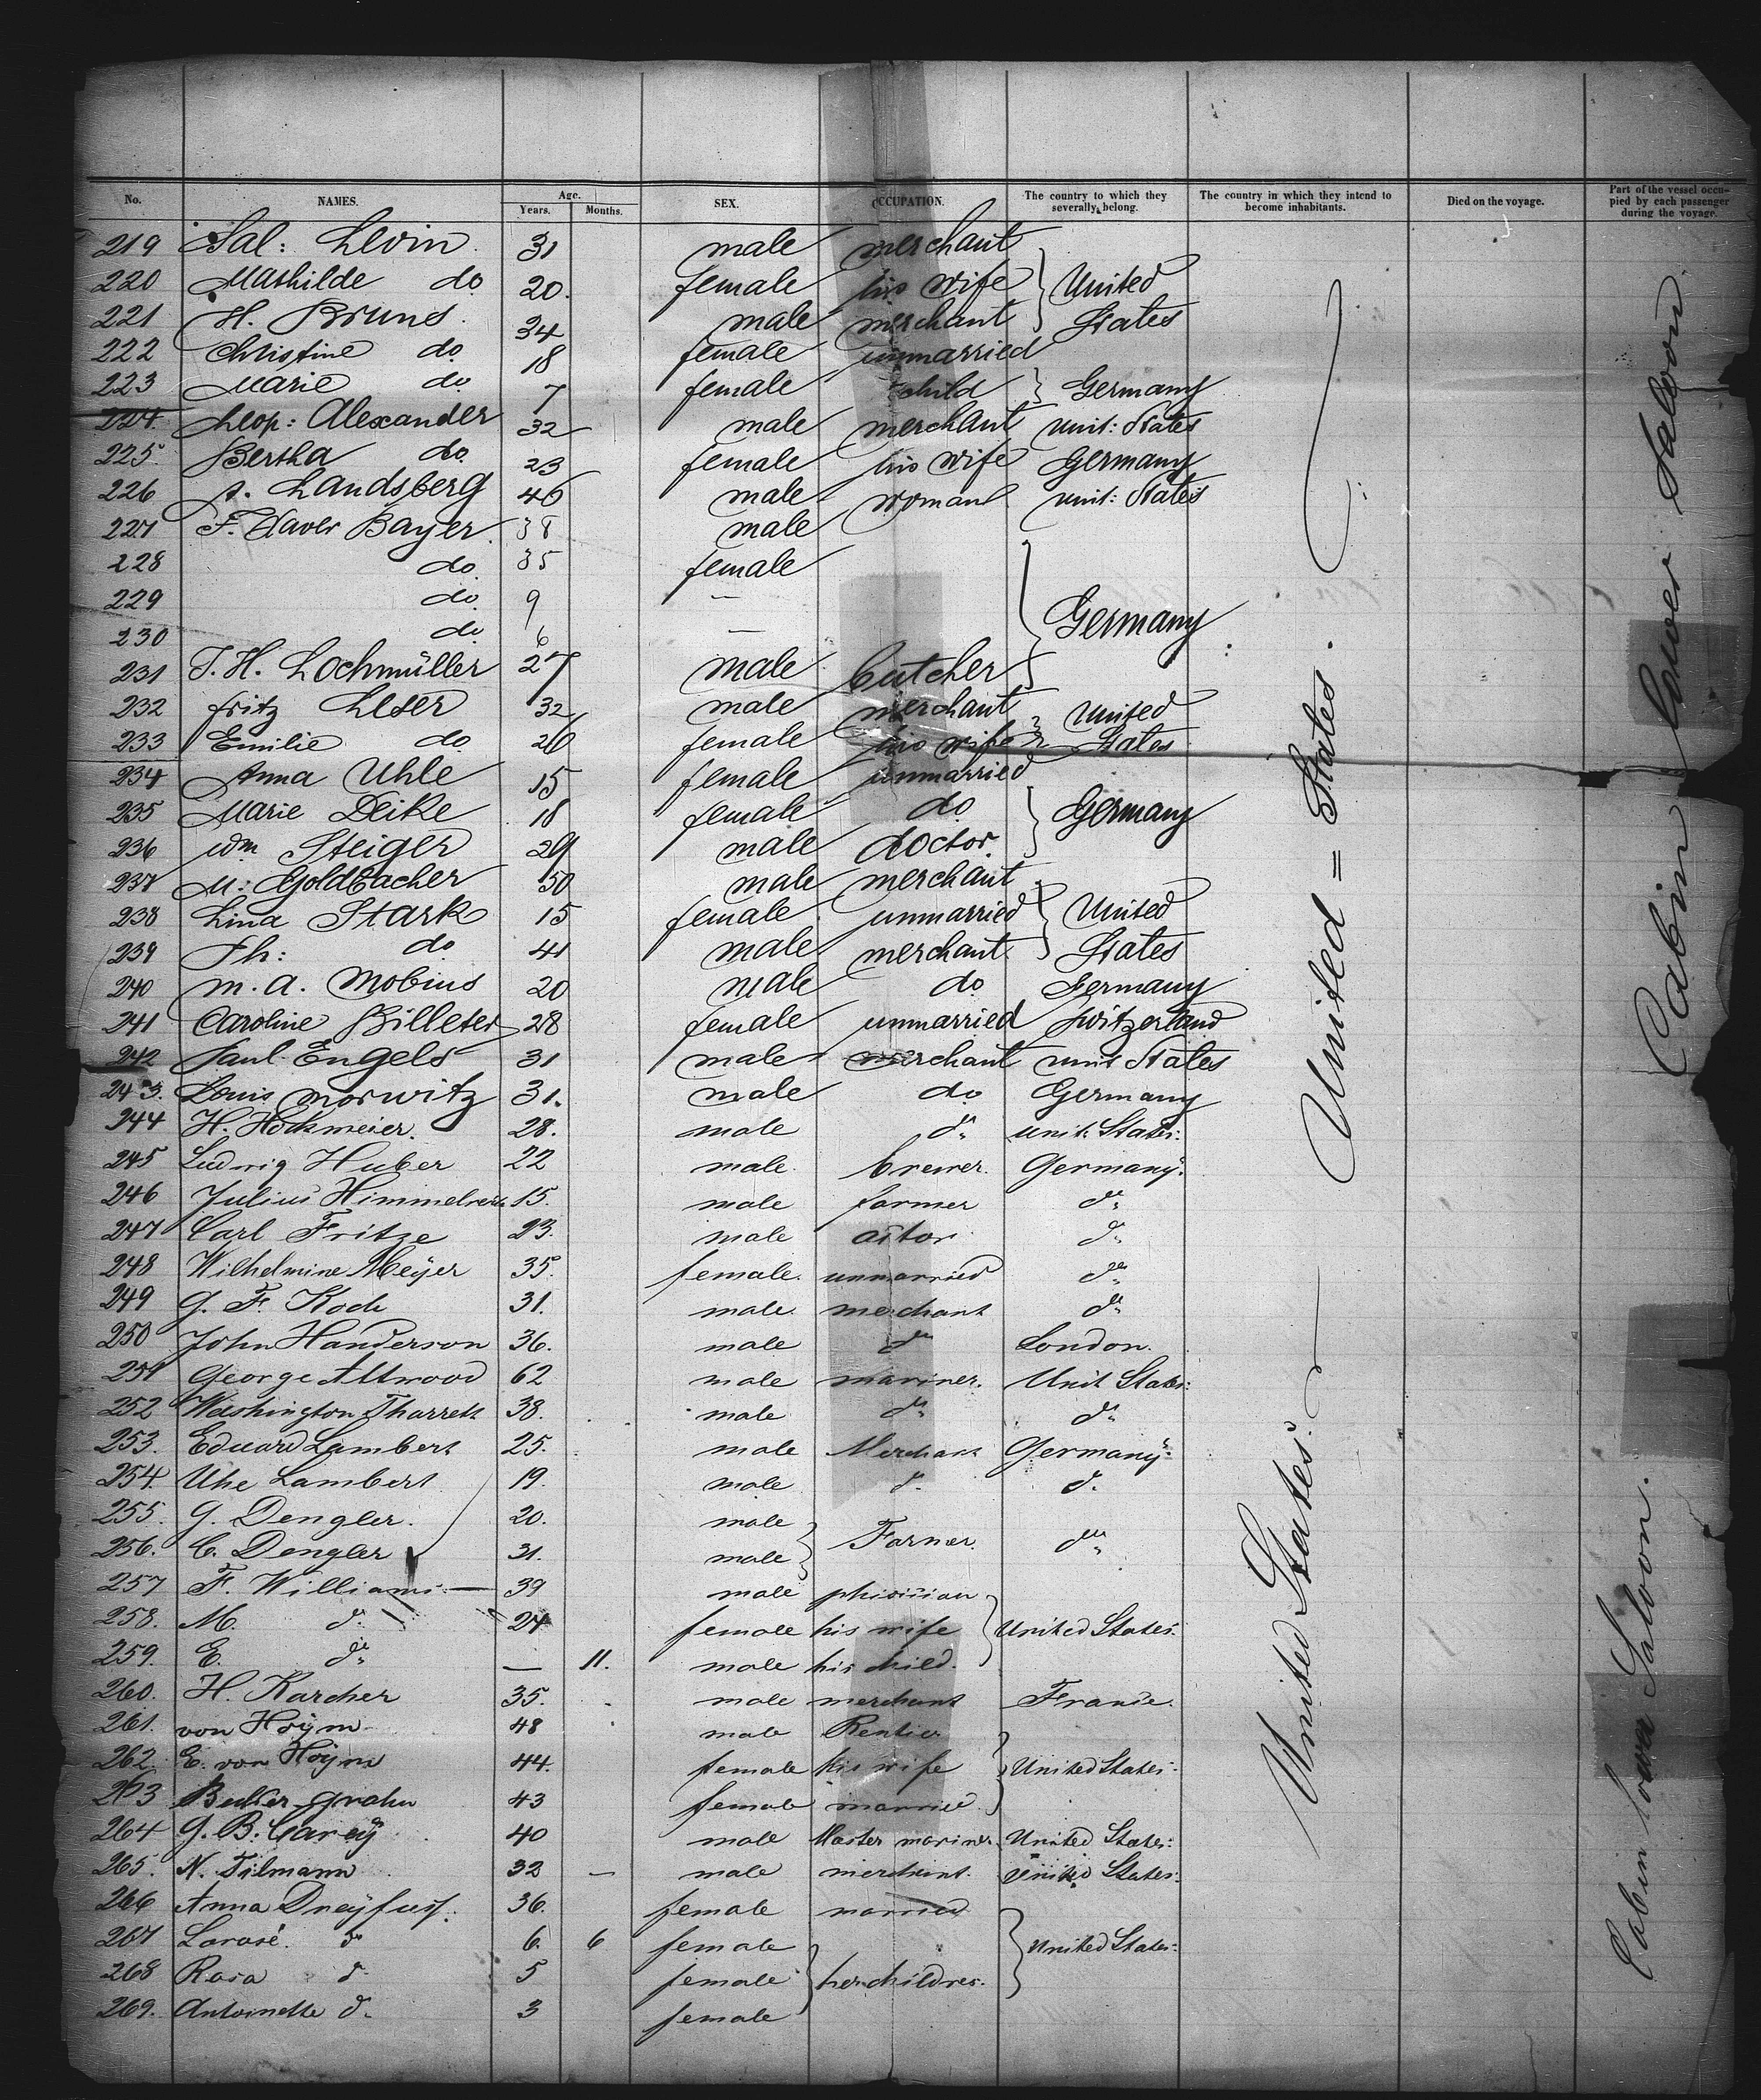 No. NAMES. Age. Years. Months. SEX. OCCUPATION. The country to which they severally belong. The country in which they intend to become inhabitants. Died on the voyage. Part of the vessel occupied by each passenger during the voyage.
219 Sal: Levin 31 male merchant
220 Mathilde do 20. female his wife } United
221 H. Bruns 34 male merchant States
222 Christine do. 18 female unmarried
223 Marie do 7 female child } Germany
224. Leop: Alexander 32 male merchant unit: States
225. Bertha do. 23 female his wife Germany
226 A. Landsberg 46 male woman unit: States
227 F. Xaver Bayer. 38 male
228 do. 35 female
229 do. 9 —
230 do 6 — Germany
231 J. H. Lochmüller 27 male butcher
232 Fritz Leser 32 male merchant United
233 Emilie do 26 female his wife States
234 Anna Uhle 15 female unmarried
235 Marie Deike 18 female do } Germany
236 Wm Steiger 29 male doctor.
237 M: Goldbacher 50 male merchant
238 Lina Stark 15 female unmarried } United
239 Th: do 41 male merchant. States
240 M. A. Mobius 20 male do Germany
241 Caroline Billeter 28 female unmarried Switzerland
242 Paul Engels 31 male merchant unit States
243. Louis Morwitz 31. male do Germany
244 H. Hockmeier. 28. male do. unit. States.
245 Ludwig Huber 22 male. brewer. Germany.
246 Julius 15. male farmer do.
247 Carl Fritze 23. male actor do.
248 Wilhelmine Meÿer 35. female. unmarried do.
249 G. F. Koch 31. male. merchant do.
250 John Handerson 36. male do London.
251 George Attwood 62 male mariner. Unit States:
252 Washington 38. male do. do.
253. Eduard Lambert 25. male Merchant Germany.
254. Uhe Lambert 19. male d. d.
255. G. Dengler. 20. male
256. C. Dengler 31. male } Farmer. do.
257 F. Williams — 39 male phisician
258. M. d. 24 female his wife United States.
259. E. do. — 11. male his child.
260. H. Karcher 35. male merchant France.
261. von Hoÿm 48 male Rentier
262. E. von Hoÿm 44. female his wife United States.
263 43 female married.
264 G. B. Careÿ 40 male Master mariner. United States:
265. N. Tilmann 32 — male merchant. United States.
266 Anna Dreÿfuss. 36. female married
267 d. 6. 6 female United States:
268 Rosa d. 5 female her children.
269. Antoinette d. 3 female
United = States.
United States.
Cabin lower Saloon
Cabin lower Saloon.